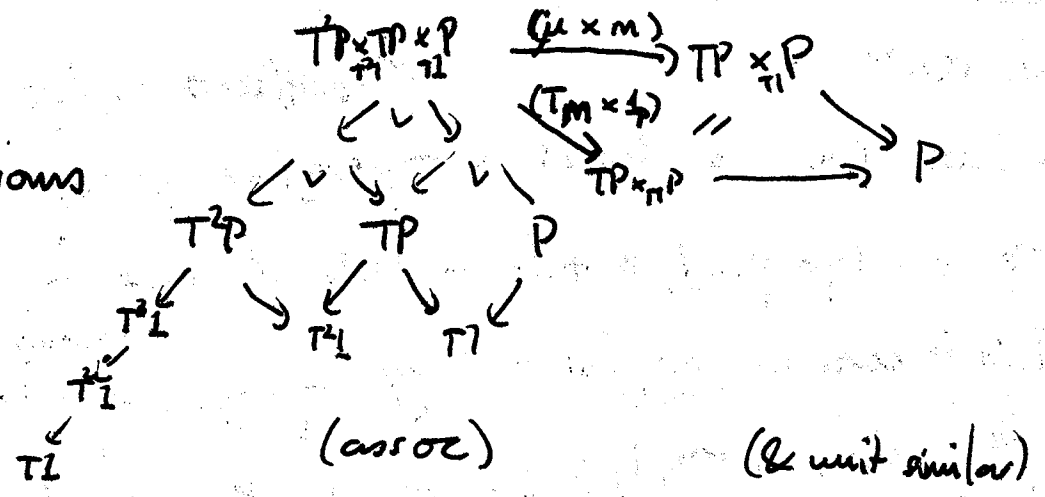 T²P ×_{T²1} TP ×_{T1} P (μ × m) TP ×_{T1} P
(Tm × 1_P)
=
TP ×_{T1} P P
T²P TP P
T³1 T²1 T1
T²1
T1
(assoc) (& unit similar)